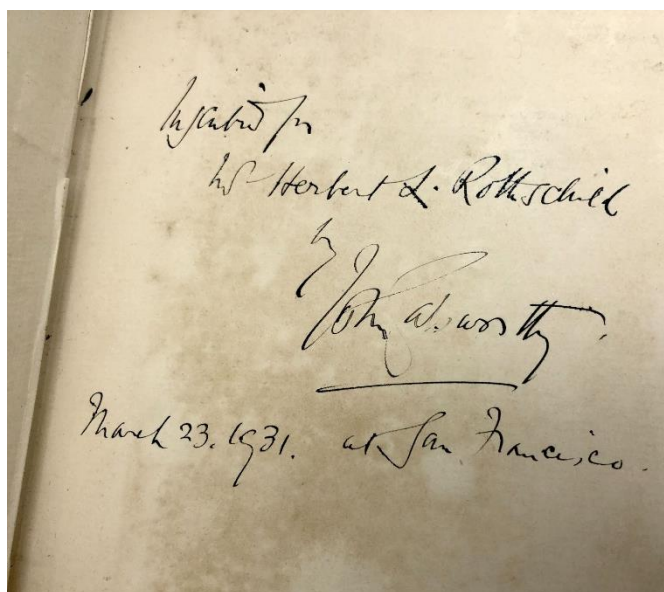 Inscribed for
Mr Herbert L. Rothschild
by
John Galsworthy.
March 23. 1931. at San Francisco.